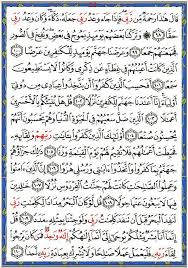 قَالَ هَٰذَا رَحْمَةٌ مِّن رَّبِّي فَإِذَا جَاءَ وَعْدُ رَبِّي جَعَلَهُ دَكَّاءَ وَكَانَ وَعْدُ رَبِّي
حَقًّا ٩٨ وَتَرَكْنَا بَعْضَهُمْ يَوْمَئِذٍ يَمُوجُ فِي بَعْضٍ وَنُفِخَ فِي الصُّورِ
فَجَمَعْنَاهُمْ جَمْعًا ٩٩ وَعَرَضْنَا جَهَنَّمَ يَوْمَئِذٍ لِّلْكَافِرِينَ عَرْضًا ١٠٠
الَّذِينَ كَانَتْ أَعْيُنُهُمْ فِي غِطَاءٍ عَن ذِكْرِي وَكَانُوا لَا يَسْتَطِيعُونَ
سَمْعًا ١٠١ أَفَحَسِبَ الَّذِينَ كَفَرُوا أَن يَتَّخِذُوا عِبَادِي مِن دُونِي
أَوْلِيَاءَ إِنَّا أَعْتَدْنَا جَهَنَّمَ لِلْكَافِرِينَ نُزُلًا ١٠٢ قُلْ هَلْ نُنَبِّئُكُم
بِالْأَخْسَرِينَ أَعْمَالًا ١٠٣ الَّذِينَ ضَلَّ سَعْيُهُمْ فِي الْحَيَاةِ الدُّنْيَا
وَهُمْ يَحْسَبُونَ أَنَّهُمْ يُحْسِنُونَ صُنْعًا ١٠٤ أُولَٰئِكَ الَّذِينَ كَفَرُوا بِآيَاتِ رَبِّهِمْ
وَلِقَائِهِ فَحَبِطَتْ أَعْمَالُهُمْ فَلَا نُقِيمُ لَهُمْ يَوْمَ الْقِيَامَةِ وَزْنًا ١٠٥
ذَٰلِكَ جَزَاؤُهُمْ جَهَنَّمُ بِمَا كَفَرُوا وَاتَّخَذُوا آيَاتِي وَرُسُلِي هُزُوًا ١٠٦
إِنَّ الَّذِينَ آمَنُوا وَعَمِلُوا الصَّالِحَاتِ كَانَتْ لَهُمْ جَنَّاتُ الْفِرْدَوْسِ نُزُلًا ١٠٧
خَالِدِينَ فِيهَا لَا يَبْغُونَ عَنْهَا حِوَلًا ١٠٨ قُل لَّوْ كَانَ الْبَحْرُ مِدَادًا لِّكَلِمَاتِ رَبِّي
لَنَفِدَ الْبَحْرُ قَبْلَ أَن تَنفَدَ كَلِمَاتُ رَبِّي وَلَوْ جِئْنَا بِمِثْلِهِ مَدَدًا ١٠٩
قُلْ إِنَّمَا أَنَا بَشَرٌ مِّثْلُكُمْ يُوحَىٰ إِلَيَّ أَنَّمَا إِلَٰهُكُمْ إِلَٰهٌ وَاحِدٌ فَمَن كَانَ يَرْجُو
لِقَاءَ رَبِّهِ فَلْيَعْمَلْ عَمَلًا صَالِحًا وَلَا يُشْرِكْ بِعِبَادَةِ رَبِّهِ أَحَدًا ١١٠